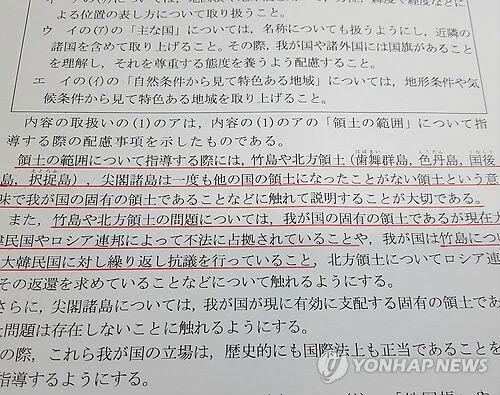 よる位置の表し方について取り扱うこと。
ウ　イの(ア)の「主な国」については，名称についても扱うようにし，近隣の
諸国を含めて取り上げること。その際，我が国や諸外国には国旗があること
を理解し，それを尊重する態度を養うよう配慮すること。
エ　イの(イ)の「自然条件から見て特色ある地域」については，地形条件や気
候条件から見て特色ある地域を取り上げること。
内容の取扱いの(1)のアは，内容の(1)のアの「領土の範囲」について指
導する際の配慮事項を示したものである。
領土の範囲について指導する際には，竹島や北方領土（歯舞群島，色丹島，国後
島，択捉島），尖閣諸島は一度も他の国の領土になったことがない領土という意
味で我が国の固有の領土であることなどに触れて説明することが大切である。
また，竹島や北方領土の問題については，我が国の固有の領土であるが現在大
韓民国やロシア連邦によって不法に占拠されていることや，我が国は竹島につい
大韓民国に対し繰り返し抗議を行っていること，北方領土についてロシア連
その返還を求めていることなどについて触れるようにする。
さらに，尖閣諸島については，我が国が現に有効に支配する固有の領土であ
問題は存在しないことに触れるようにする。
の際，これら我が国の立場は，歴史的にも国際法上も正当であることを
指導するようにする。
YONHAP NEWS